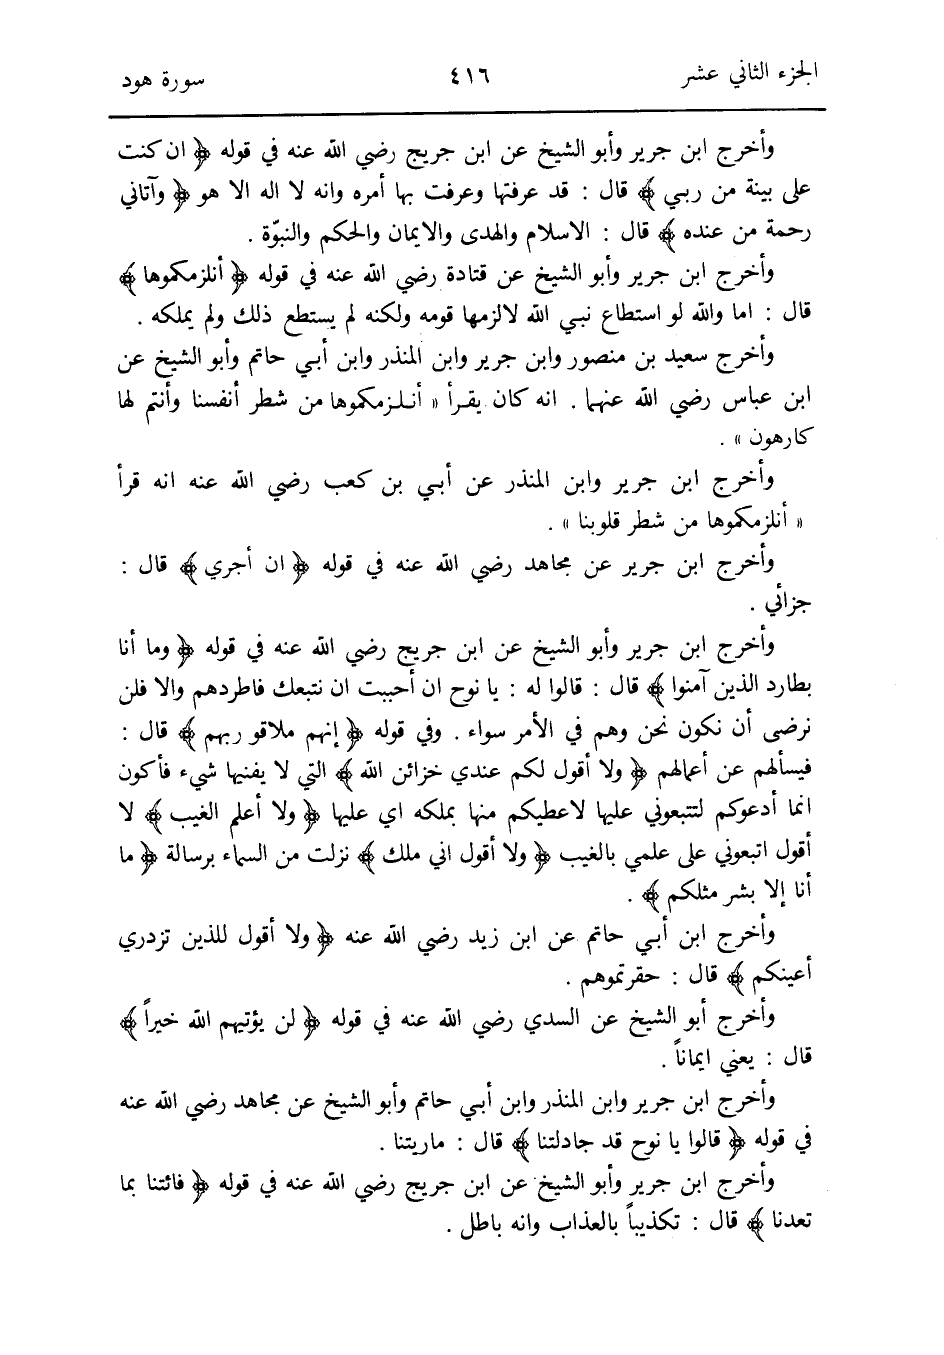 الجزء الثاني عشر ٤١٦ سورة هود
وأخرج ابن جرير وأبو الشيخ عن ابن جريج رضي الله عنه في قوله ﴿ ان كنت
على بينة من ربـي ﴾ قال : قد عرفتها وعرفت بها أمره وانه لا اله الا هو ﴿ وآتاني
رحمة من عنده ﴾ قال : الاسلام والهدى والايمان والحكم والنبوّة .
وأخرج ابن جرير وأبو الشيخ عن قتادة رضي الله عنه في قوله ﴿ أنلزمكموها ﴾
قال : اما والله لو استطاع نبـي الله لالزمها قومه ولكنه لم يستطع ذلك ولم يملكه .
وأخرج سعيد بن منصور وابن جرير وابن المنذر وابن أبـي حاتم وأبو الشيخ عن
ابن عباس رضي الله عنهما . انه كان يقرأ « أنلزمكموها من شطر أنفسنا وأنتم لها
كارهون » .
وأخرج ابن جرير وابن المنذر عن أبـي بن كعب رضي الله عنه انه قرأ
« أنلزمكموها من شطر قلوبنا » .
وأخرج ابن جرير عن مجاهد رضي الله عنه في قوله ﴿ ان أجري ﴾ قال :
جزائي .
وأخرج ابن جرير وأبو الشيخ عن ابن جريج رضي الله عنه في قوله ﴿ وما أنا
بطارد الذين آمنوا ﴾ قال : قالوا له : يا نوح ان أحببت ان نتبعك فاطردهم والا فلن
نرضى أن نكون نحن وهم في الأمر سواء . وفي قوله ﴿ إنهم ملاقو ربهم ﴾ قال :
فيسألهم عن أعمالهم ﴿ ولا أقول لكم عندي خزائن الله ﴾ التي لا يفنيها شيء فأكون
انما أدعوكم لتتبعوني عليها لاعطيكم منها بملكه اي عليها ﴿ ولا أعلم الغيب ﴾ لا
أقول اتبعوني على علمي بالغيب ﴿ ولا أقول اني ملك ﴾ نزلت من السماء برسالة ﴿ ما
أنا إلا بشر مثلكم ﴾ .
وأخرج ابن أبـي حاتم عن ابن زيد رضي الله عنه ﴿ ولا أقول للذين تزدري
أعينكم ﴾ قال : حقرتموهم .
وأخرج أبو الشيخ عن السدي رضي الله عنه في قوله ﴿ لن يؤتيهم الله خيراً ﴾
قال : يعني ايماناً .
وأخرج ابن جرير وابن المنذر وابن أبـي حاتم وأبو الشيخ عن مجاهد رضي الله عنه
في قوله ﴿ قالوا يا نوح قد جادلتنا ﴾ قال : ماريتنا .
وأخرج ابن جرير وأبو الشيخ عن ابن جريج رضي الله عنه في قوله ﴿ فائتنا بما
تعدنا ﴾ قال : تكذيباً بالعذاب وانه باطل .